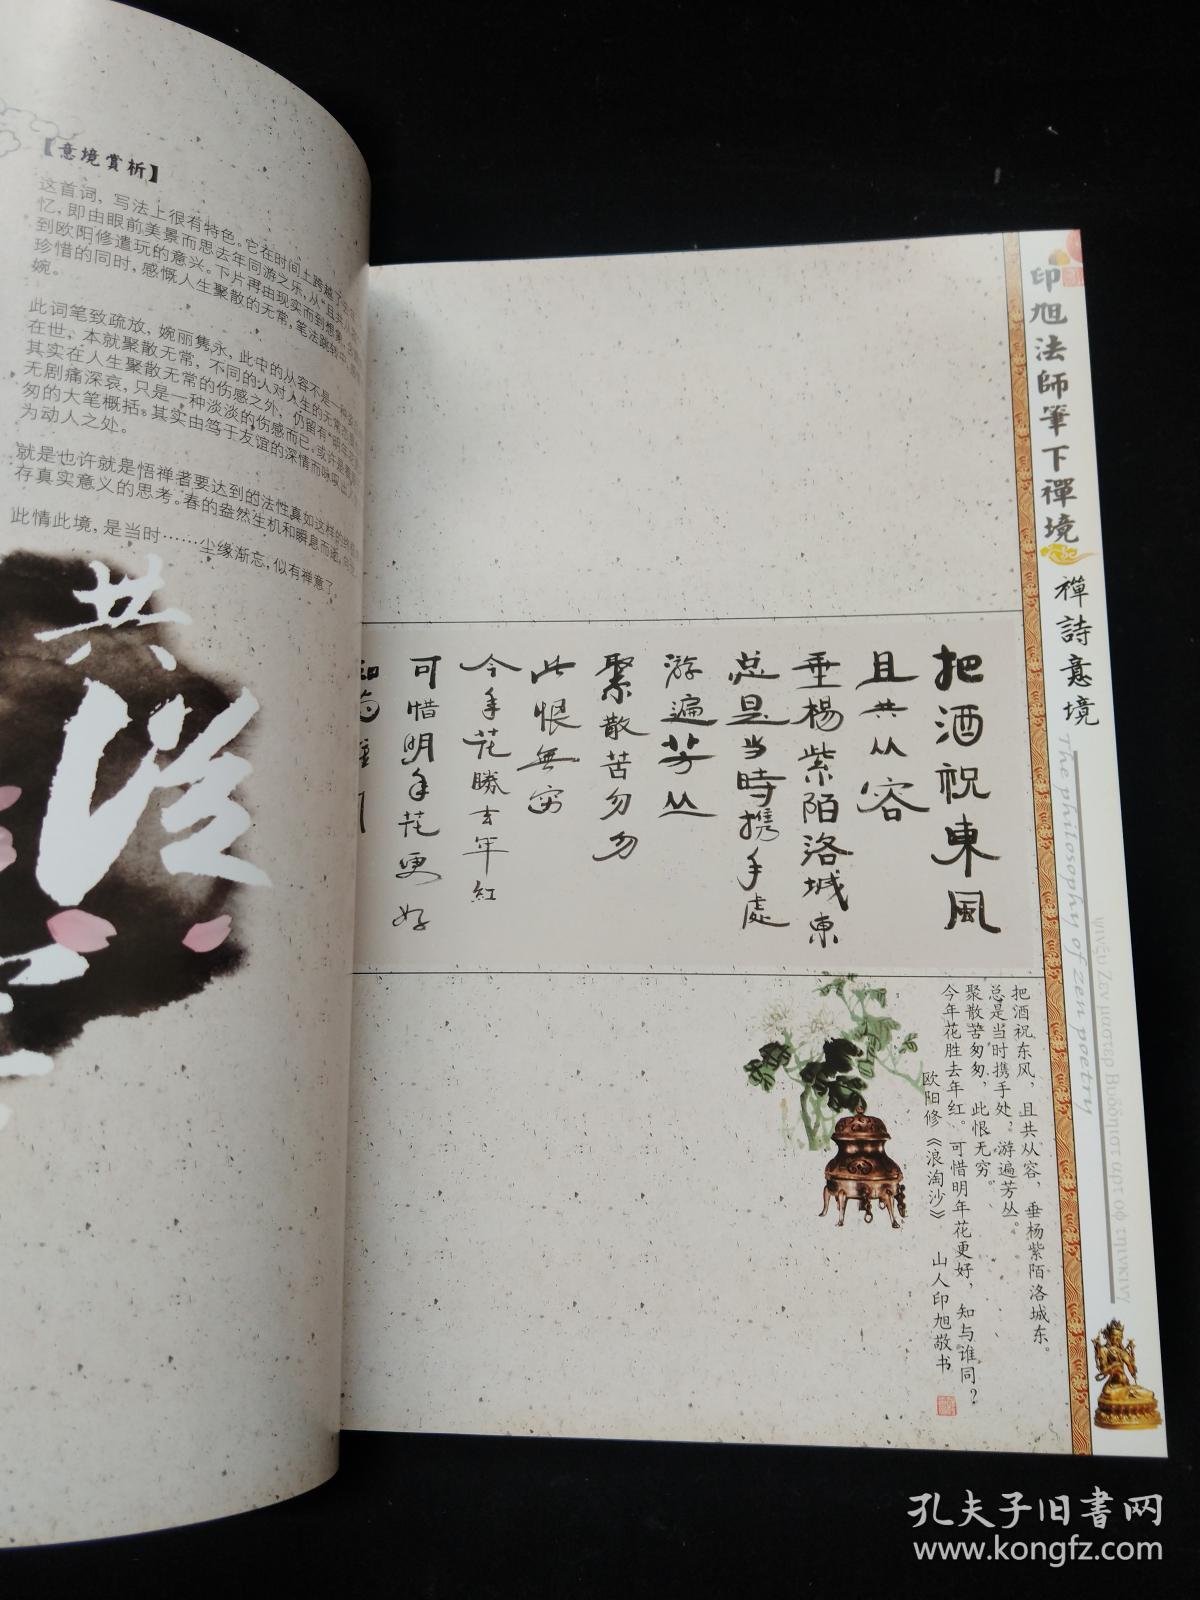 【意境赏析】
这首词，写法上很有特色。它在时间上跨越了
忆，即由眼前美景而思去年同游之乐，从"且共从
到欧阳修遣玩的意兴。下片再由现实而到想象
珍惜的同时，感慨人生聚散的无常，笔法跳
婉。
此词笔致疏放，婉丽隽永，此中的从容不是一种
在世，本就聚散无常，不同的人对人生的无常
其实在人生聚散无常的伤感之外，仍留有"明年花更
无剧痛深哀，只是一种淡淡的伤感而已。或许是
匆的大笔概括。其实由笃于友谊的深情而
为动人之处。
就是也许就是悟禅者要达到的法性真如这样的
存真实意义的思考。春的盎然生机和瞬息而逝
此情此境，是当时……尘缘渐忘，似有禅意了
共
從
把酒祝東風
且共从容
垂楊紫陌洛城東
总是当時攜手處
游遍芳丛
聚散苦匆匆
此恨無穷
今年花勝去年紅
可惜明年花更好
把酒祝东风，且共从容，垂杨紫陌洛城东。
总是当时携手处，游遍芳丛。
聚散苦匆匆，此恨无穷。
今年花胜去年红。可惜明年花更好，知与谁同？
欧阳修《浪淘沙》 山人印旭敬书
印旭法師筆下禪境
禪詩意境
The philosophy of zen poetry
孔夫子旧書网
www.kongfz.com